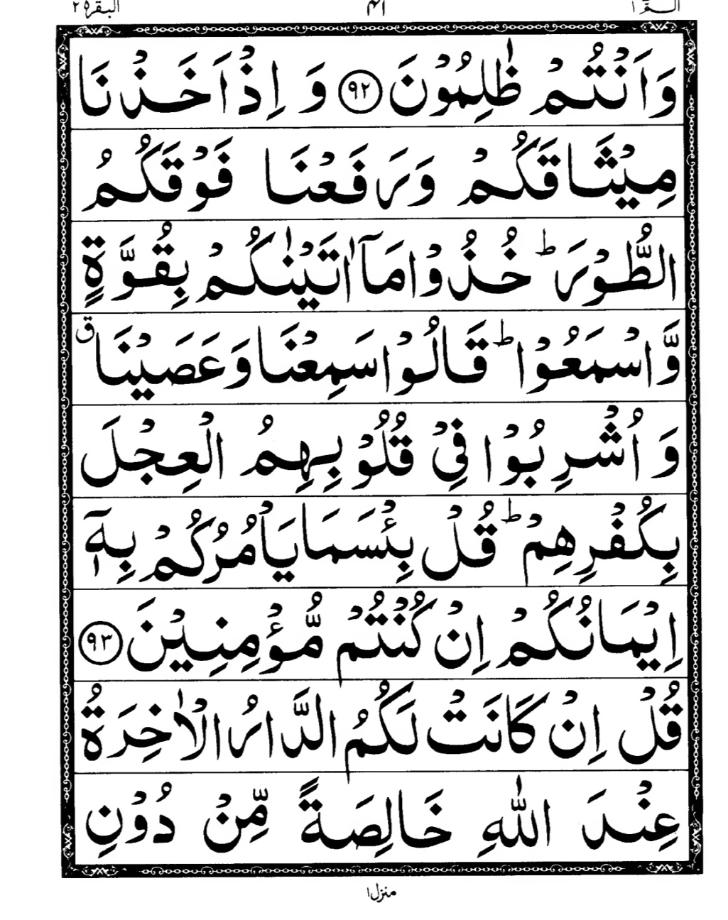 البقرة ٢ ٣١ الٓمّٓ ١
وَاَنْتُمْ ظٰلِمُوْنَ ﴿٩٢﴾ وَ اِذْ اَخَذْنَا
مِيْثَاقَكُمْ وَرَفَعْنَا فَوْقَكُمُ
الطُّوْرَ ؕ خُذُوْا مَاۤ اٰتَيْنٰكُمْ بِقُوَّةٍ
وَّاسْمَعُوْا ؕ قَالُوْا سَمِعْنَا وَعَصَيْنَا ۗ
وَ اُشْرِبُوْا فِىْ قُلُوْبِهِمُ الْعِجْلَ
بِكُفْرِهِمْ ؕ قُلْ بِئْسَمَا يَاْمُرُكُمْ بِهٖۤ
اِيْمَانُكُمْ اِنْ كُنْتُمْ مُّؤْمِنِيْنَ ﴿٩٣﴾
قُلْ اِنْ كَانَتْ لَكُمُ الدَّارُ الْاٰخِرَةُ
عِنْدَ اللّٰهِ خَالِصَةً مِّنْ دُوْنِ
منزل ١